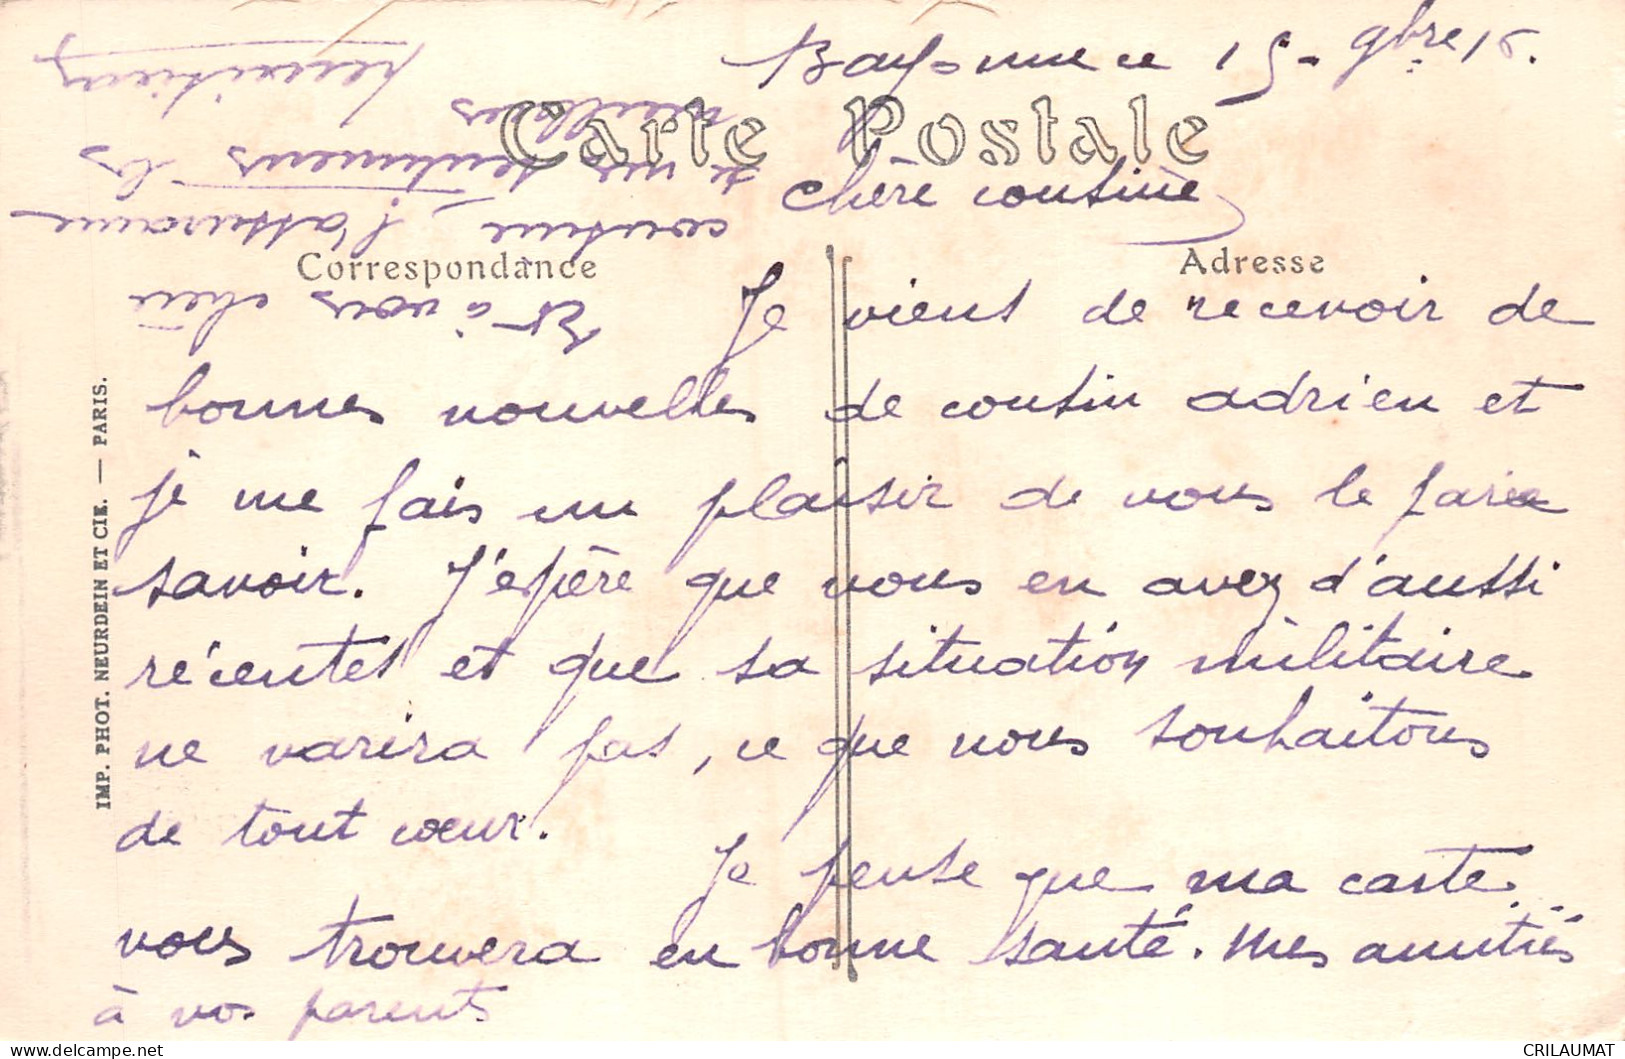 Bayonne ce 15 - 9bre 15.
Carte Postale
chère cousine,
Correspondance
Adresse
Je viens de recevoir de
bonnes nouvelles de cousin adrien et
je me fais un plaisir de vous le faire
savoir. J'epère que vous en avez d'aussi
récentes et que sa situation militaire
ne varira pas, ce que nous souhaitons
de tout cœur.
Je pense que ma carte
vous trouvera en bonne santé. Mes amitiés
à vos parents
Et à vous chère
cousine l'assurance
de mes sentiments les
meilleurs
IMP. PHOT. NEURDEIN ET CIE. — PARIS.
CRILAUMAT